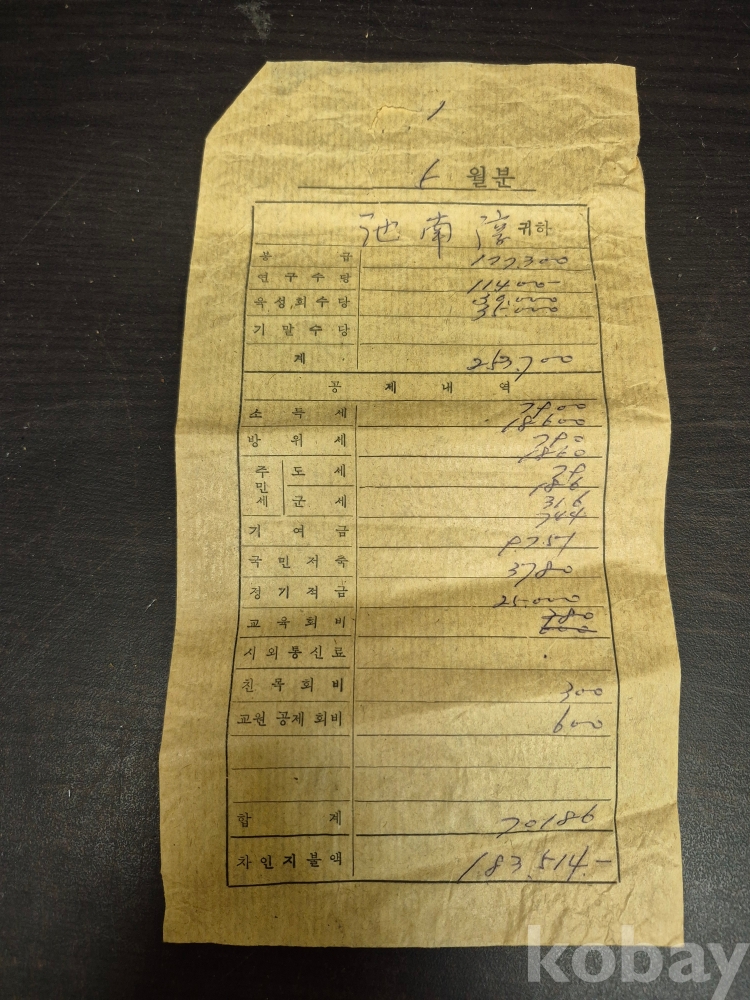 1
월분
池南淳 귀하
봉급 127,300
연구수당 11400-
육성회수당 35,000
기말수당
계 253,700
공제내역
소득세 18600
방위세 1860
주민세 도세 186
군세 744
기여금
국민저축 3780
정기적금 25,000
교육회비
시외통신료
친목회비 300
교원공제회비 600
합계 70186
차인지불액 183,514.-
kobay